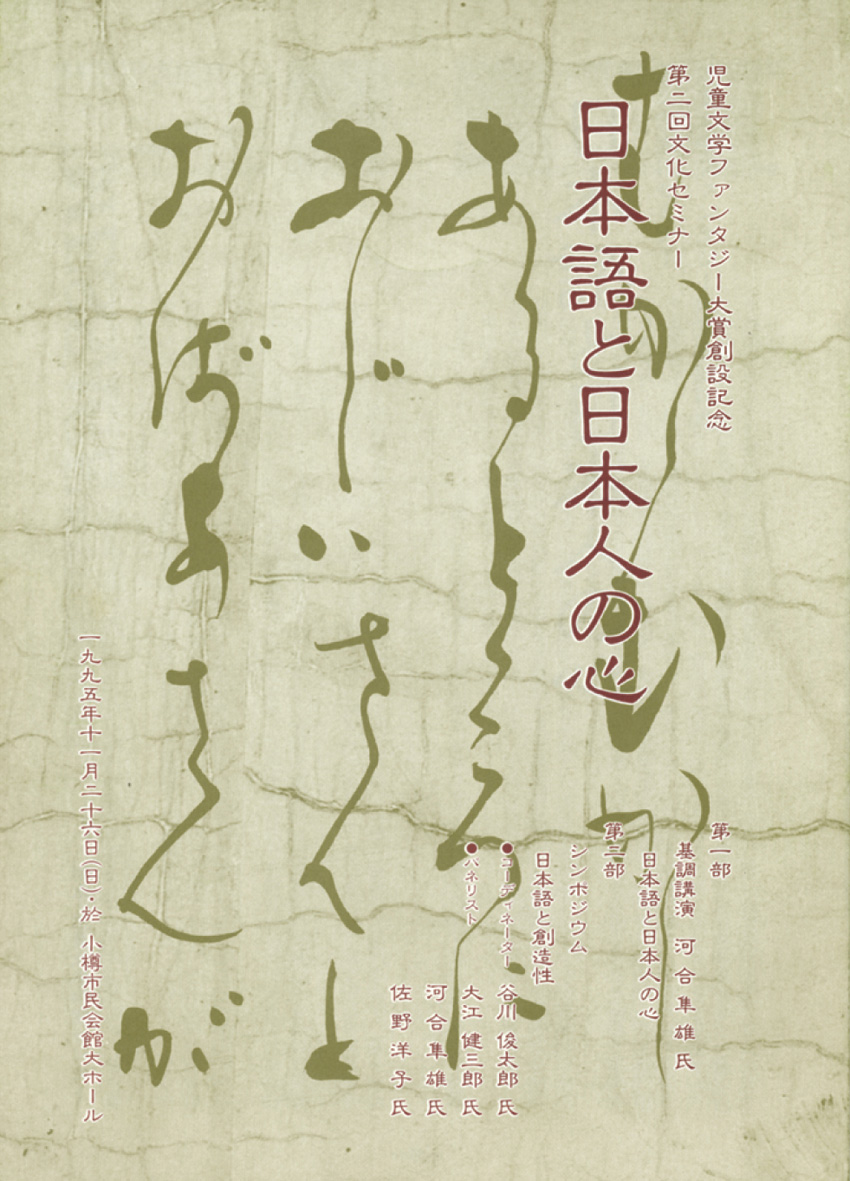 児童文学ファンタジー大賞創設記念
第二回文化セミナー
日本語と日本人の心
第一部
基調講演 河合隼雄氏
日本語と日本人の心
第二部
シンポジウム
日本語と創造性
●コーディネーター 谷川俊太郎氏
●パネリスト 大江健三郎氏
河合隼雄氏
佐野洋子氏
一九九五年十一月二十六日(日)・於 小樽市民会館大ホール
むかしむかし
あるところに
おじいさんと
おばあさんが